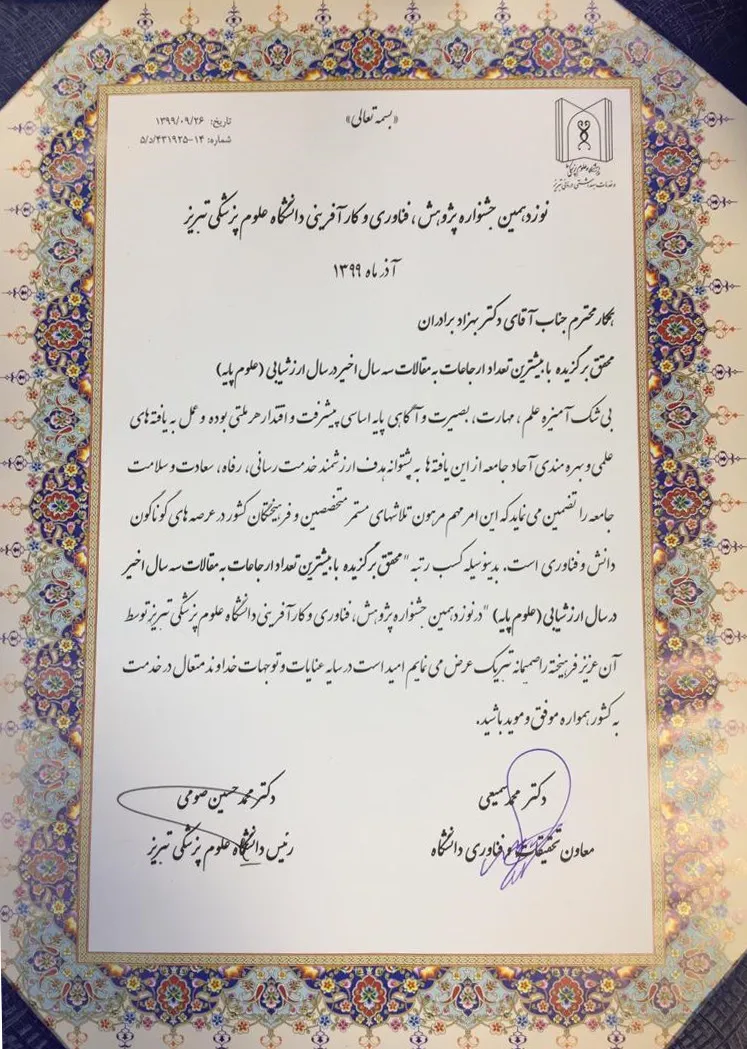 «بسمه تعالی»
تاریخ: ۱۳۹۹/۰۹/۲۶
شماره: ۱۴-۵/د/۴۳۱۹۲۵
دانشگاه علوم پزشکی
و خدمات بهداشتی درمانی تبریز
نوزدهمین جشنواره پژوهش، فناوری و کارآفرینی دانشگاه علوم پزشکی تبریز
آذر ماه ۱۳۹۹
همکار محترم جناب آقای دکتر بهزاد برادران
محقق برگزیده با بیشترین تعداد ارجاعات به مقالات سه سال اخیر در سال ارزشیابی (علوم پایه)
بی شک آمیزه علم، مهارت، بصیرت و آگاهی پایه اساسی پیشرفت و اقتدار هر ملتی بوده و عمل به یافته های
علمی و بهره مندی آحاد جامعه از این یافته ها به پشتوانه هدف ارزشمند خدمت رسانی، رفاه، سعادت و سلامت
جامعه را تضمین می نماید که این امر مهم مرهون تلاشهای مستمر متخصصین و فرهیختگان کشور در عرصه های گوناگون
دانش و فناوری است. بدینوسیله کسب رتبه "محقق برگزیده با بیشترین تعداد ارجاعات به مقالات سه سال اخیر
در سال ارزشیابی (علوم پایه) "در نوزدهمین جشنواره پژوهش، فناوری و کارآفرینی دانشگاه علوم پزشکی تبریز توسط
آن عزیز فرهیخته را صمیمانه تبریک عرض می نمایم امید است در سایه عنایات و توجهات خداوند متعال در خدمت
به کشور همواره موفق و موید باشید.
دکتر محمد سمیعی
معاون تحقیقات و فناوری دانشگاه
دکتر محمد حسین صومی
رئیس دانشگاه علوم پزشکی تبریز